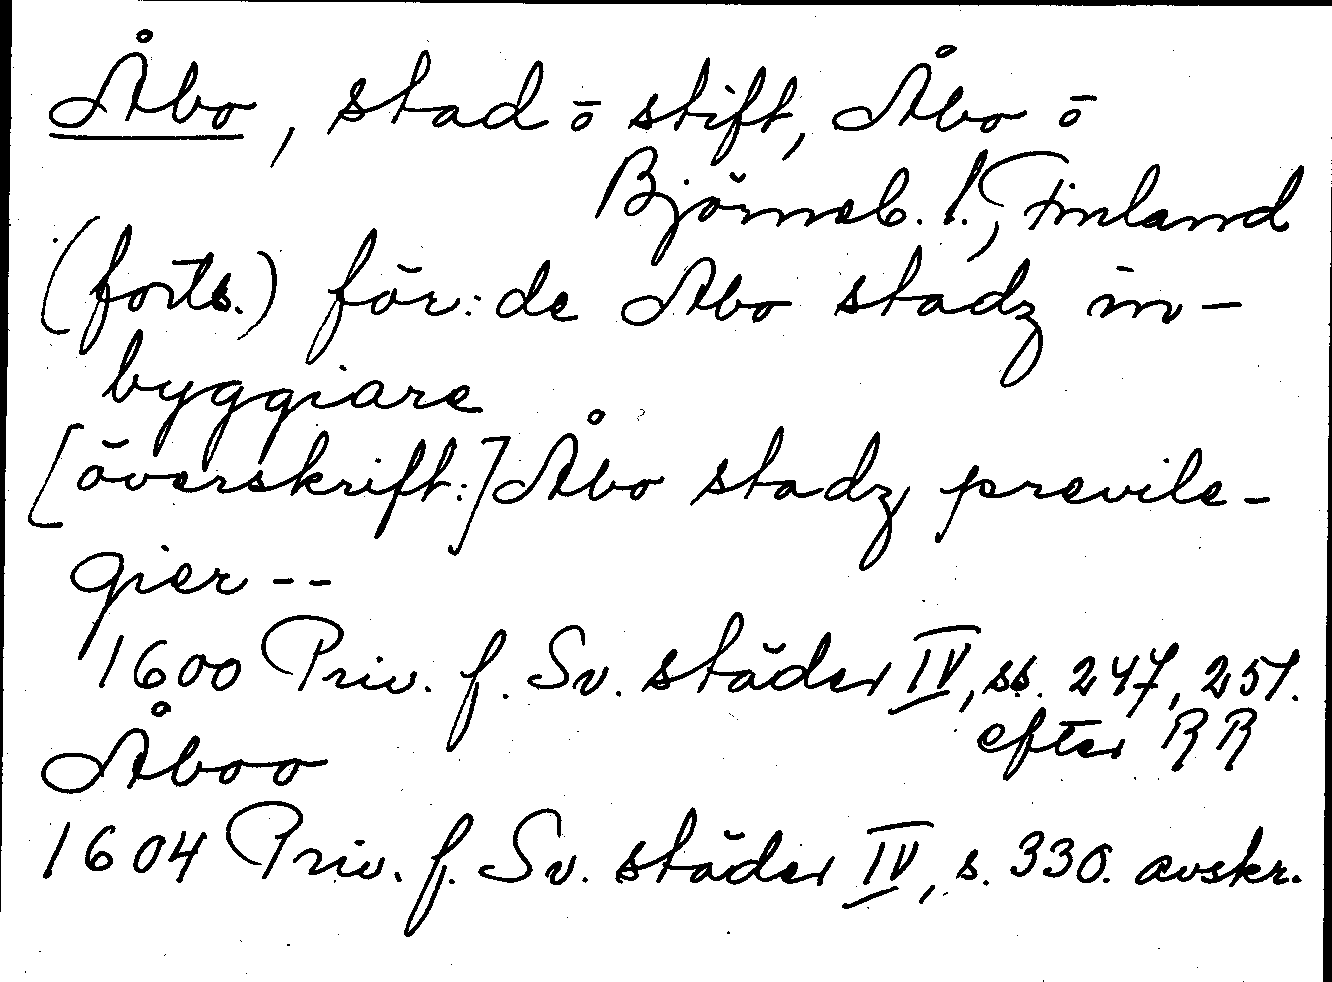 Åbo, stad o stift, Åbo o
Björneb. l., Finland
(forts.) för: de Abo stadz in-
byggiare
[överskrift:] Åbo stadz previle-
gier --
1600 Priv. f. Sv. städer IV, ss. 247, 251.
efter RR
Åboo
1604 Priv. f. Sv. städer IV, s. 330. avskr.